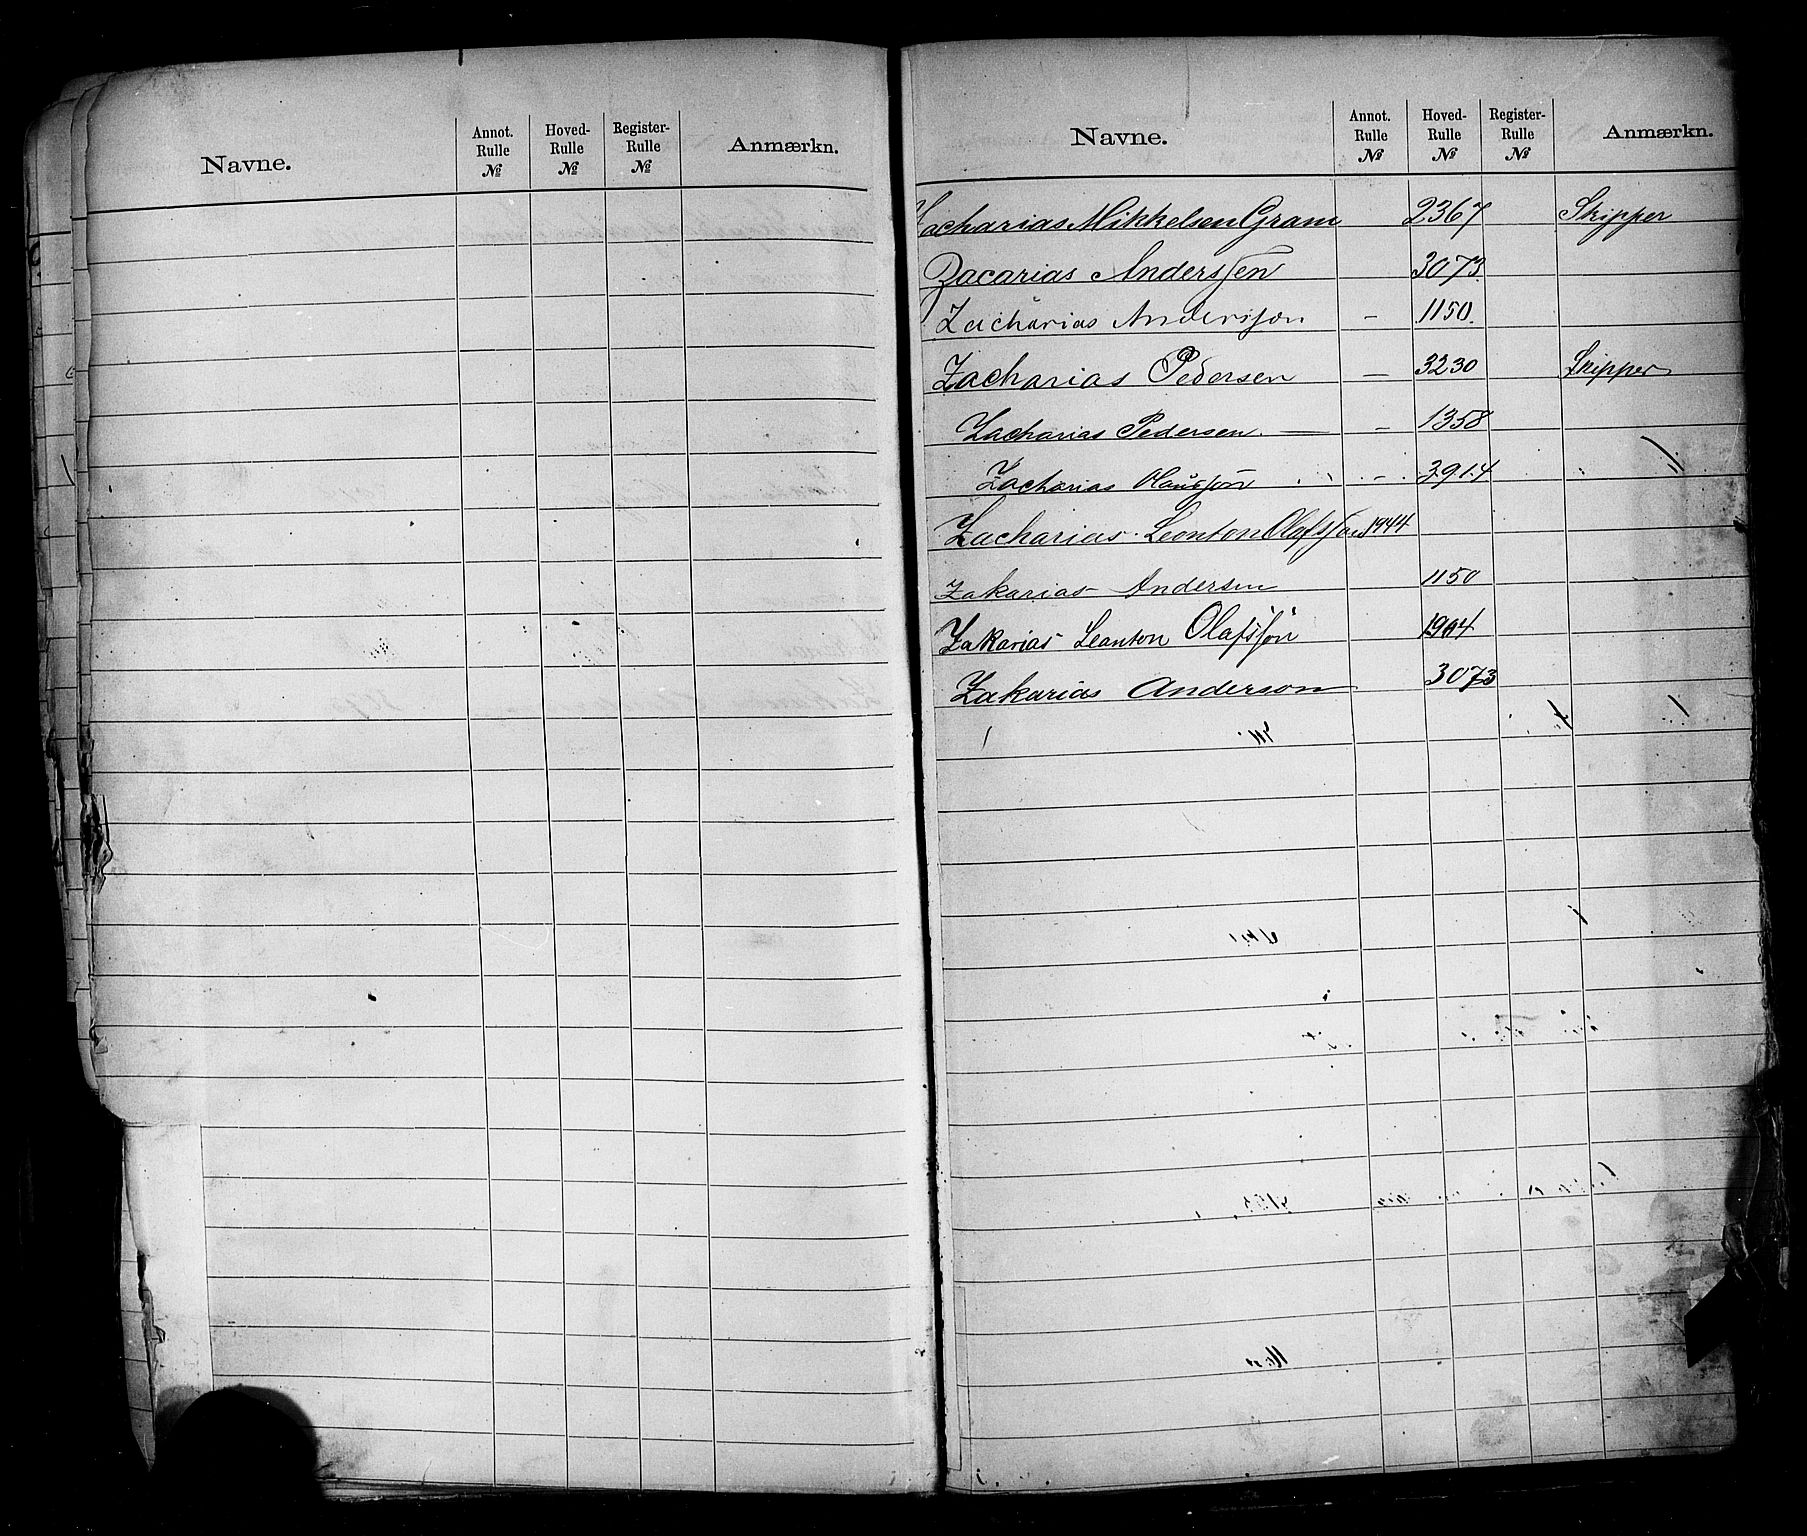 Navne. Annot. Rulle № Hoved- Rulle № Register- Rulle № Anmærkn.
Navne. Annot. Rulle № Hoved- Rulle № Register- Rulle № Anmærkn.
Zacharias Mikkelsen Gram 2367 Skipper
Zacarias Anderssen 3073
Zacharias Andersson - 1150.
Zacharias Pedersen - 3230 Skipper
Zacharias Pedersen. - 1358
Zacharias 3914
Zacharias Leonton Olafsson 1944
Zakarias Andersen 1150
Zakarias Leonton Olafsson
Zakarias Anderson 3073